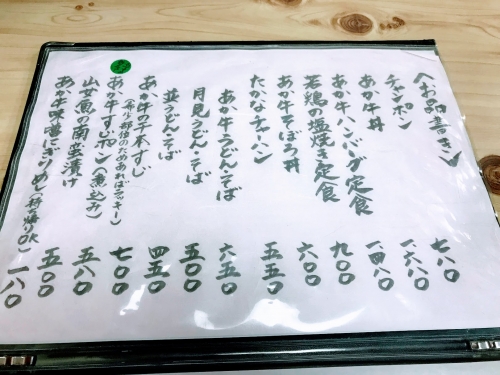 〈お品書き〉
チャンポン 七八〇
あか牛丼 一、六八〇
あか牛ハンバーグ定食 一、四八〇
若鶏の塩焼き定食 九〇〇
あか牛そぼろ丼 六〇〇
たかなチャーハン 五五〇
あか牛うどん・そば 六五〇
月見うどん・そば 五〇〇
並うどん・そば 四五〇
あか牛の千本すじ 七〇〇
(希少部位のためあればラッキー)
あか牛すじポン(煮込み) 五八〇
山女魚の南蛮漬け 五〇〇
あか牛味噌にぎりめし(持ち帰りOK) 一八〇